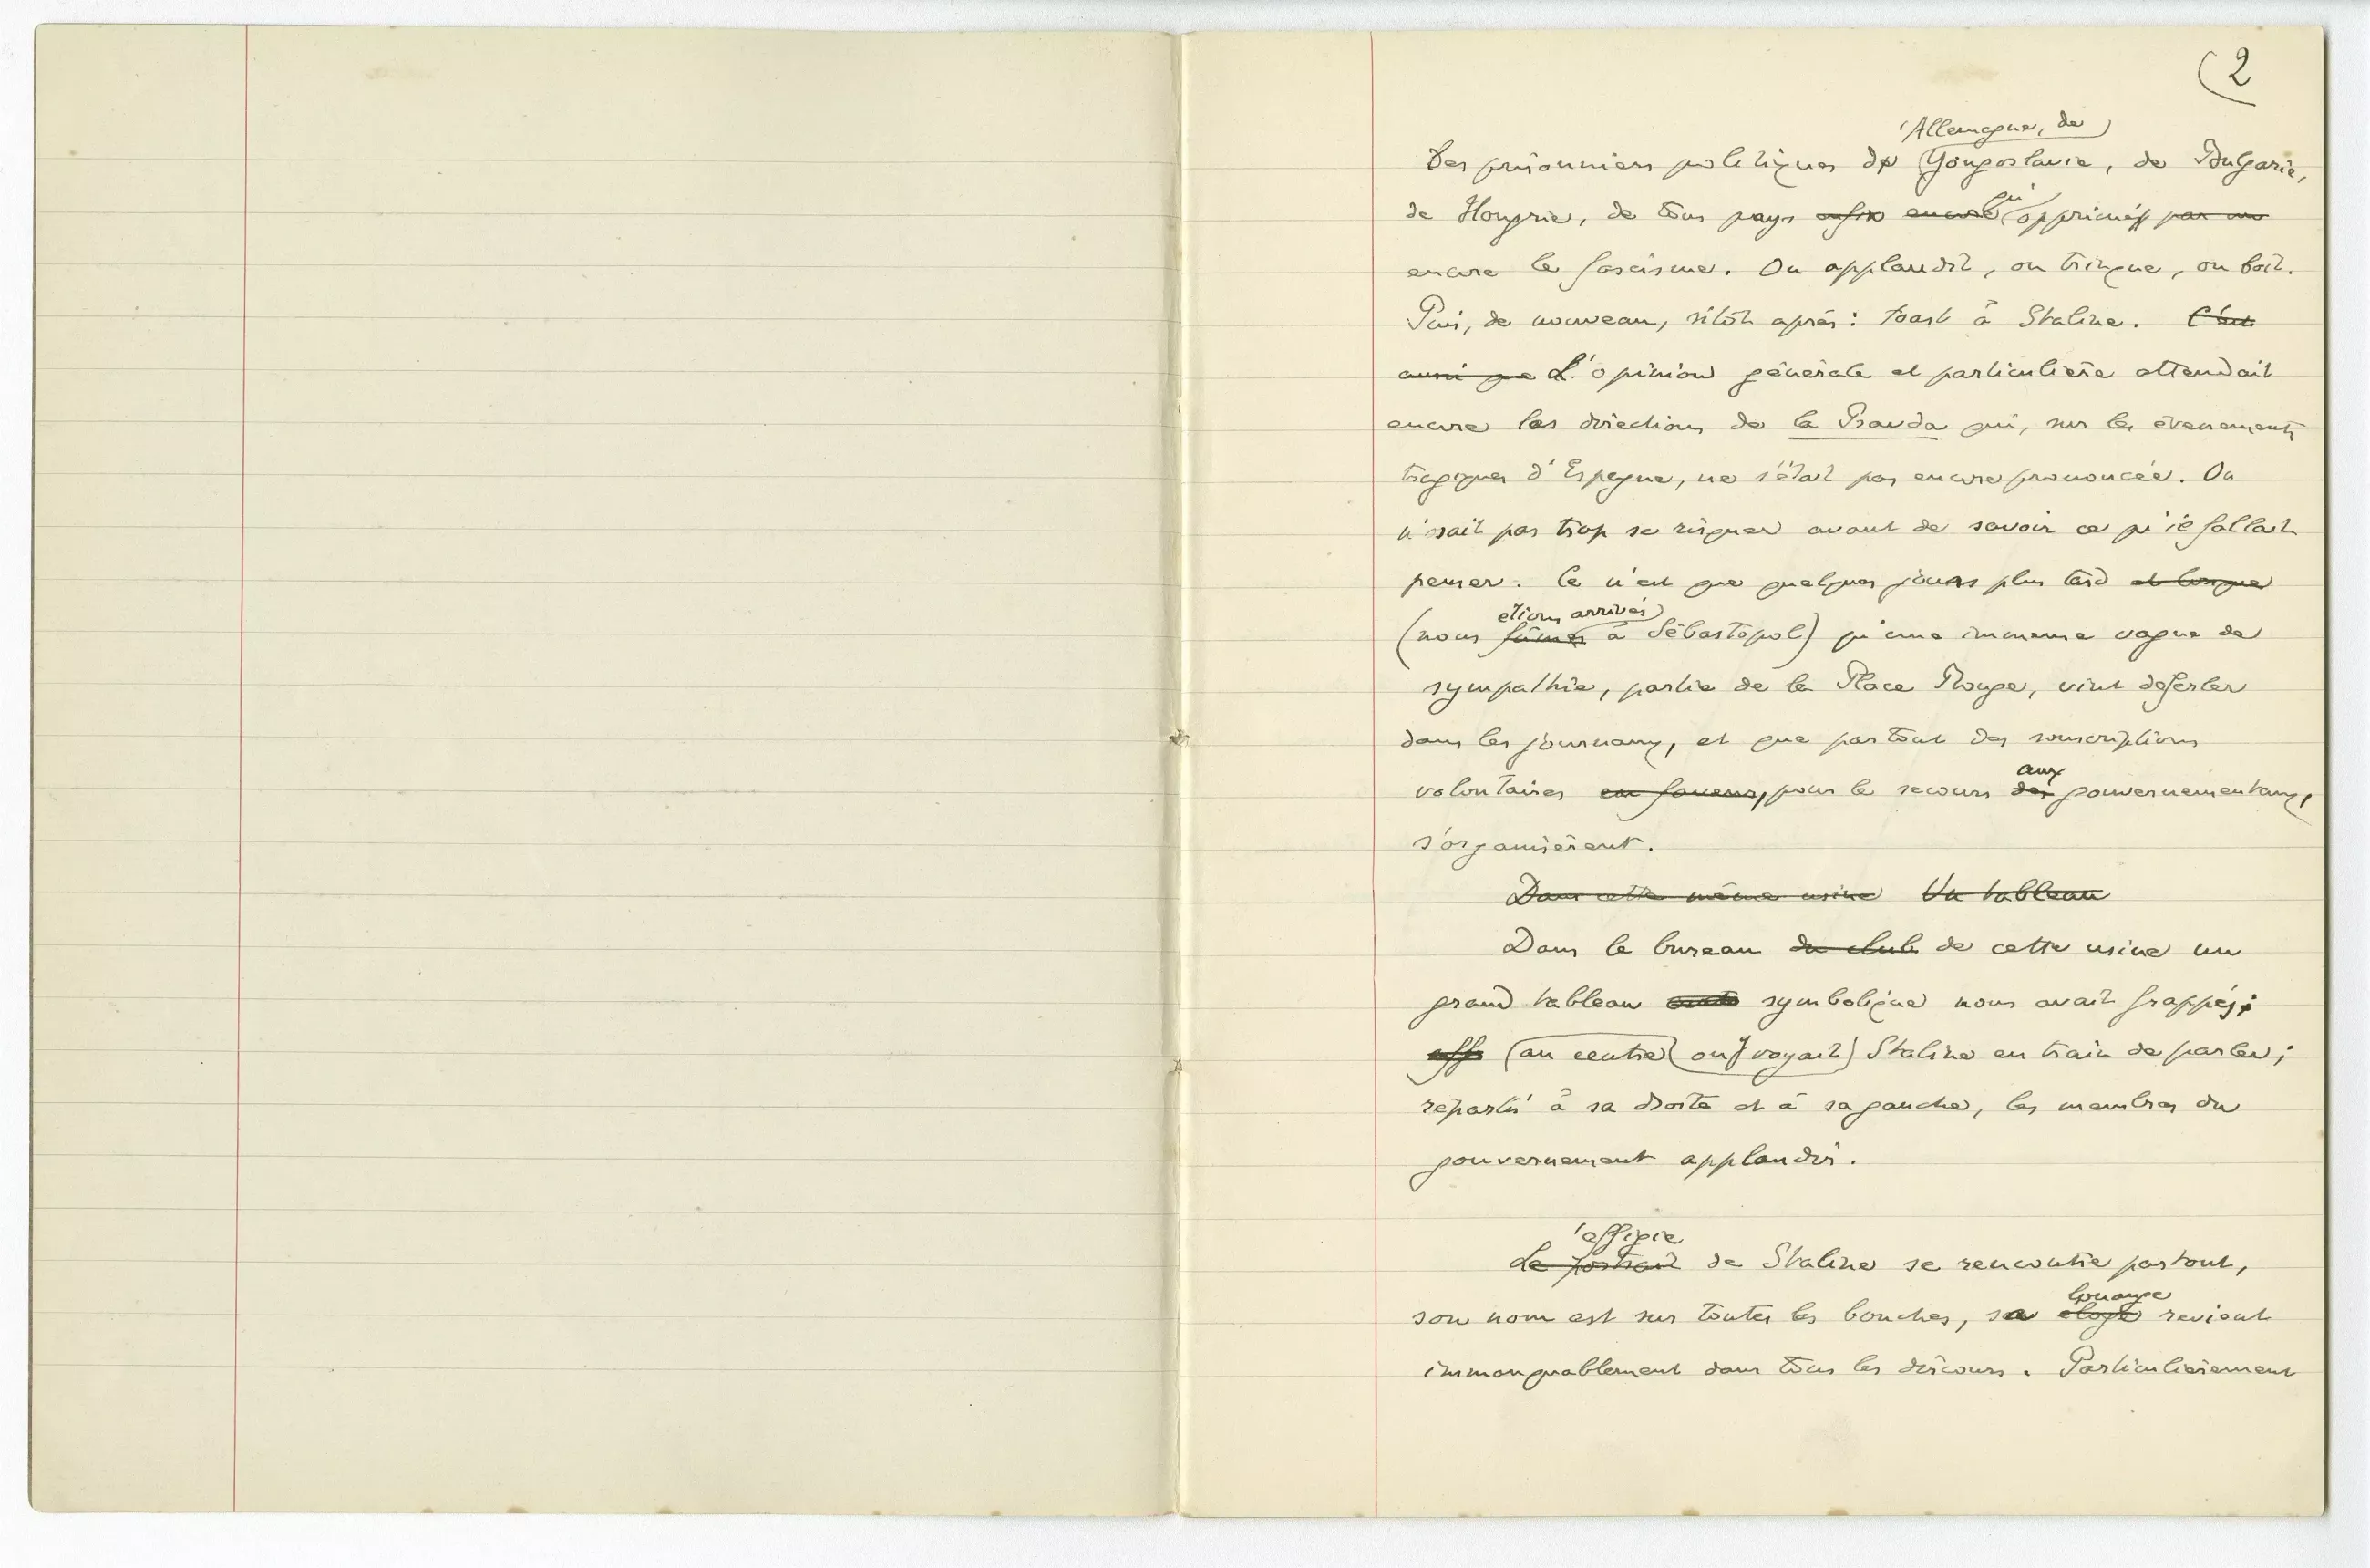 (2
'Allemagne, de
Des prisonniers politiques d Yougoslavie, de Bulgarie,
qui
de Hongrie, de tous pays encore opprimés par un
encore le fascisme. On applaudit, on trinque, on boit.
Puis, de nouveau, sitôt après : toast à Staline. C'est
aussi que L'opinion générale et particulière attendait
encore les directions de la Pravda qui, sur les évenements
tragiques d'Espagne, ne s'était pas encore prononcée. On
n'osait pas trop se risquer avant de savoir ce qu'il fallait
penser. Ce n'est que quelques jours plus tard et lorsque
étions arrivés
(nous fûmes à Sébastopol) qu'une immense vague de
sympathie, partie de la Place Rouge, vint déferler
dans les journaux, et que partout des souscriptions
aux
volontaires en faveur, pour le secours des gouvernementaux,
s'organisèrent.
Dans cette même usine Un tableau
Dans le bureau du club de cette usine un
grand tableau symbolique nous avait frappés ;
au centre on voyait Staline en train de parler ;
répartis à sa droite et à sa gauche, les membres du
gouvernement applaudir.
'effigie
Le portrait de Staline se rencontre partout,
louange
son nom est sur toutes les bouches, sa éloge revient
immanquablement dans tous les discours. Particulièrement